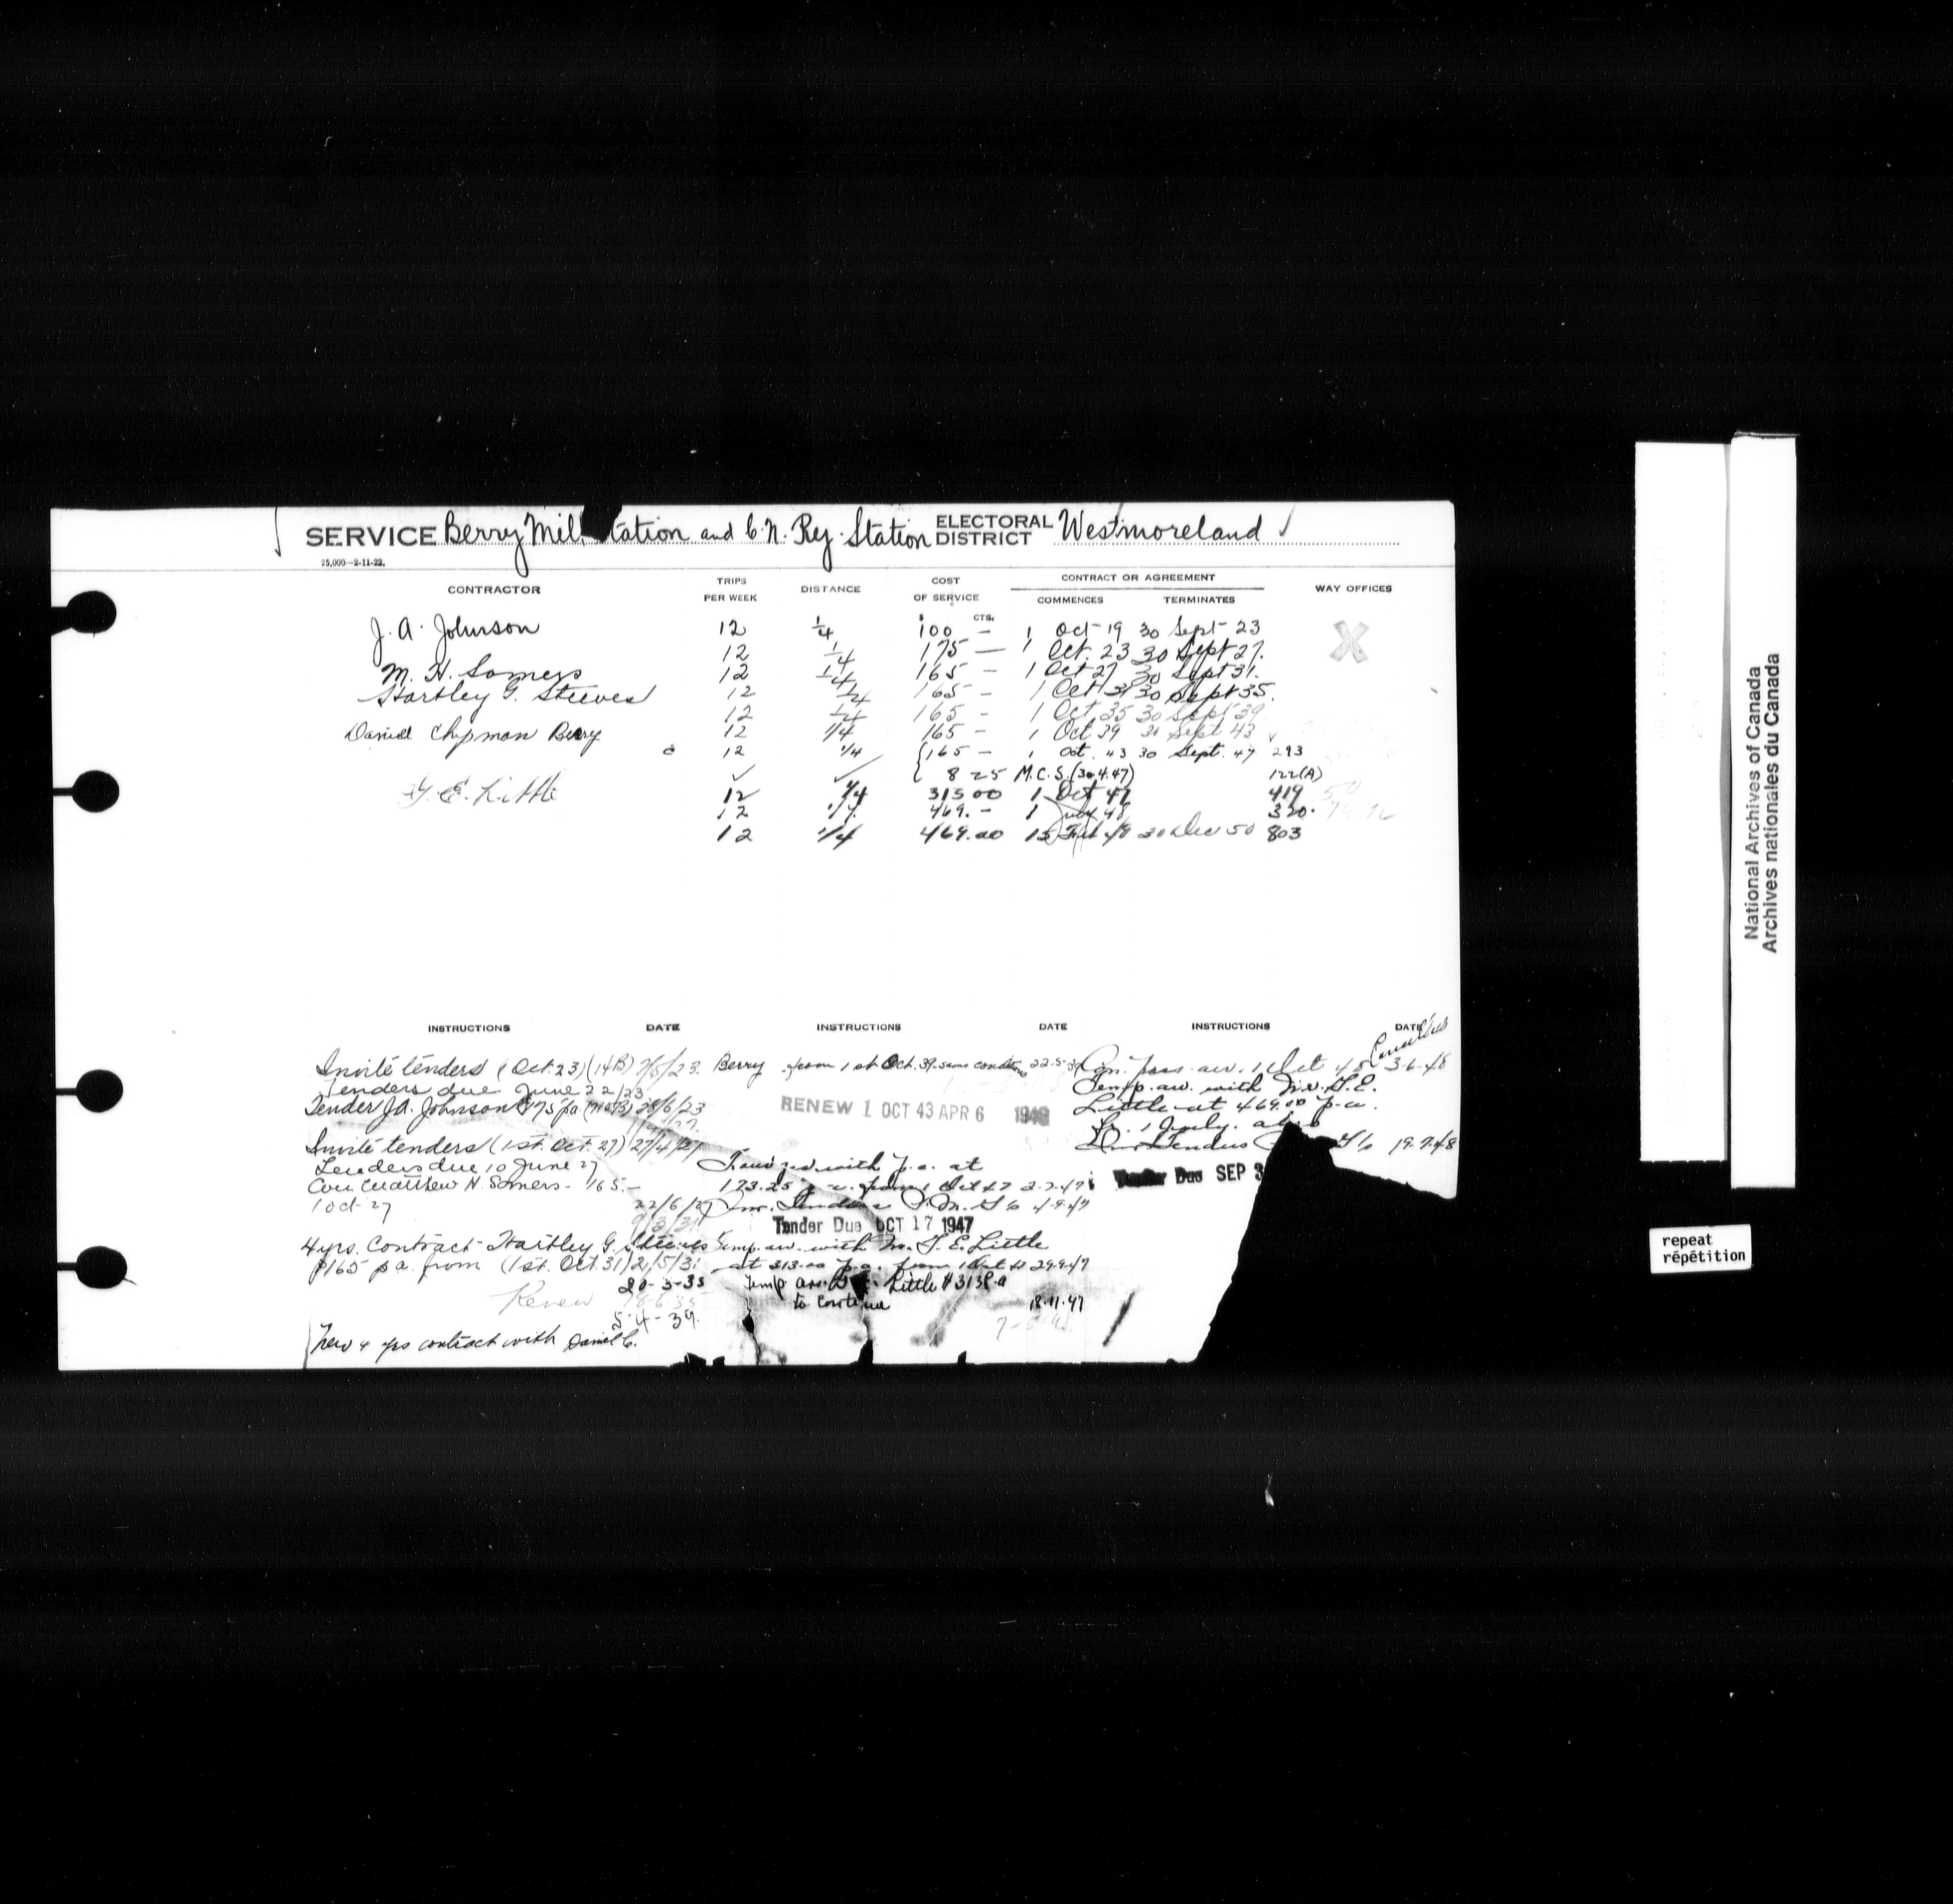 SERVICE Berry Mil tation and C.N. Ry. Station ELECTORAL DISTRICT Westmoreland
25,000—2-11-22.
CONTRACTOR TRIPS PER WEEK DISTANCE COST OF SERVICE CONTRACT OR AGREEMENT COMMENCES TERMINATES WAY OFFICES
$ CTS.
J. A. Johnson 12 1/4 100 — 1 Oct 19 30 Sept 23 X
12 1/4 175 — 1 Oct. 23 30 Sept 27.
M. H. Somers 12 1/4 165 — 1 Oct 27 30 Sept 31.
Hartley G. Steeves 12 1/4 165 — 1 Oct 31 30 Sept 35.
12 1/4 165 — 1 Oct 35 30 Sept 39
Daniel Chipman Berry 12 1/4 165 — 1 Oct 39 30 Sept 43
12 1/4 165 — 1 Oct. 43 30 Sept. 47 293
8 25 M.C.S. (30.4.47) 122(A)
G. E. Little 12 1/4 313 00 1 Oct 47 419
12 1/4 469. — 1 July 48 320.
12 1/4 469.00 15 48 30 Dec 50 803
INSTRUCTIONS DATE INSTRUCTIONS DATE INSTRUCTIONS DATE
Invite tenders (Oct. 23) (14B) /5/23.
Tenders due June 22/23
Tender J.A. Johnson 175 pa 28/6/23
Invite tenders (1st. Oct. 27) 27/4/27
Tenders due 10 June 27
Con Matthew H. Somers — 165.—
1 Oct 27 22/6/27
4 yrs. Contract Hartley G. Steeves
$165 p.a. from (1st. Oct. 31) 21/5/31
20-3-35
Renew
5-4-39.
New 4 yrs contract with Daniel C.
Berry from 1st Oct. 39. same conditions 22.5.39
RENEW 1 OCT 43 APR 6 1943
with p.a. at
173.25 from 1 Oct 47 2-7-47
Inv. Tenders P.M. 4-9-47
Tender Due OCT 17 1947
Temp. arr. with Mr. G. E. Little
at 313.00 p.a. from 1 Oct 47 29.9.47
Temp. arr. Little $313 P.a
to continue 18.11.47
arr. 1 Oct 48 3-6-48
Cancelled
Temp. arr. with Mr. G. E.
Little at 469.00 p.a.
fr. 1 July.
Inv. Tenders 19-7-48
Tender Due SEP 3
National Archives of Canada
Archives nationales du Canada
repeat
répétition